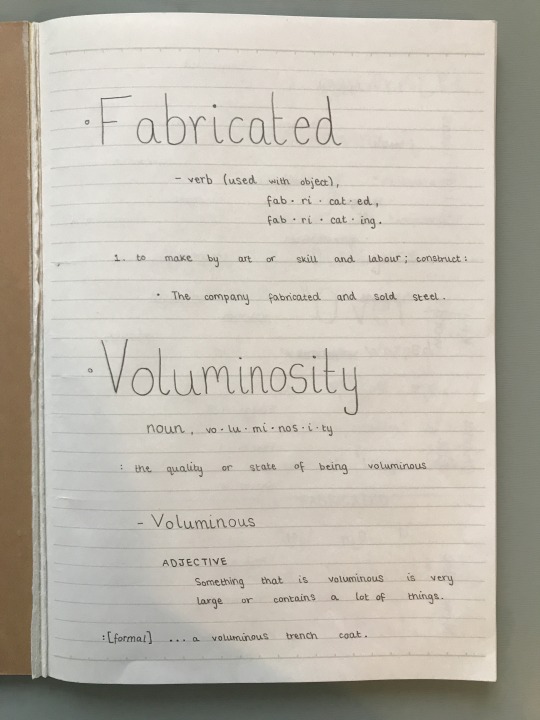 ° Fabricated
- verb (used with object),
fab · ri · cat · ed,
fab · ri · cat · ing.
1. to make by art or skill and labour; construct:
• The company fabricated and sold steel.
° Voluminosity
noun, vo · lu · mi · nos · i · ty
: the quality or state of being voluminous
- Voluminous
ADJECTIVE
Something that is voluminous is very
large or contains a lot of things.
:[formal] ... a voluminous trench coat.